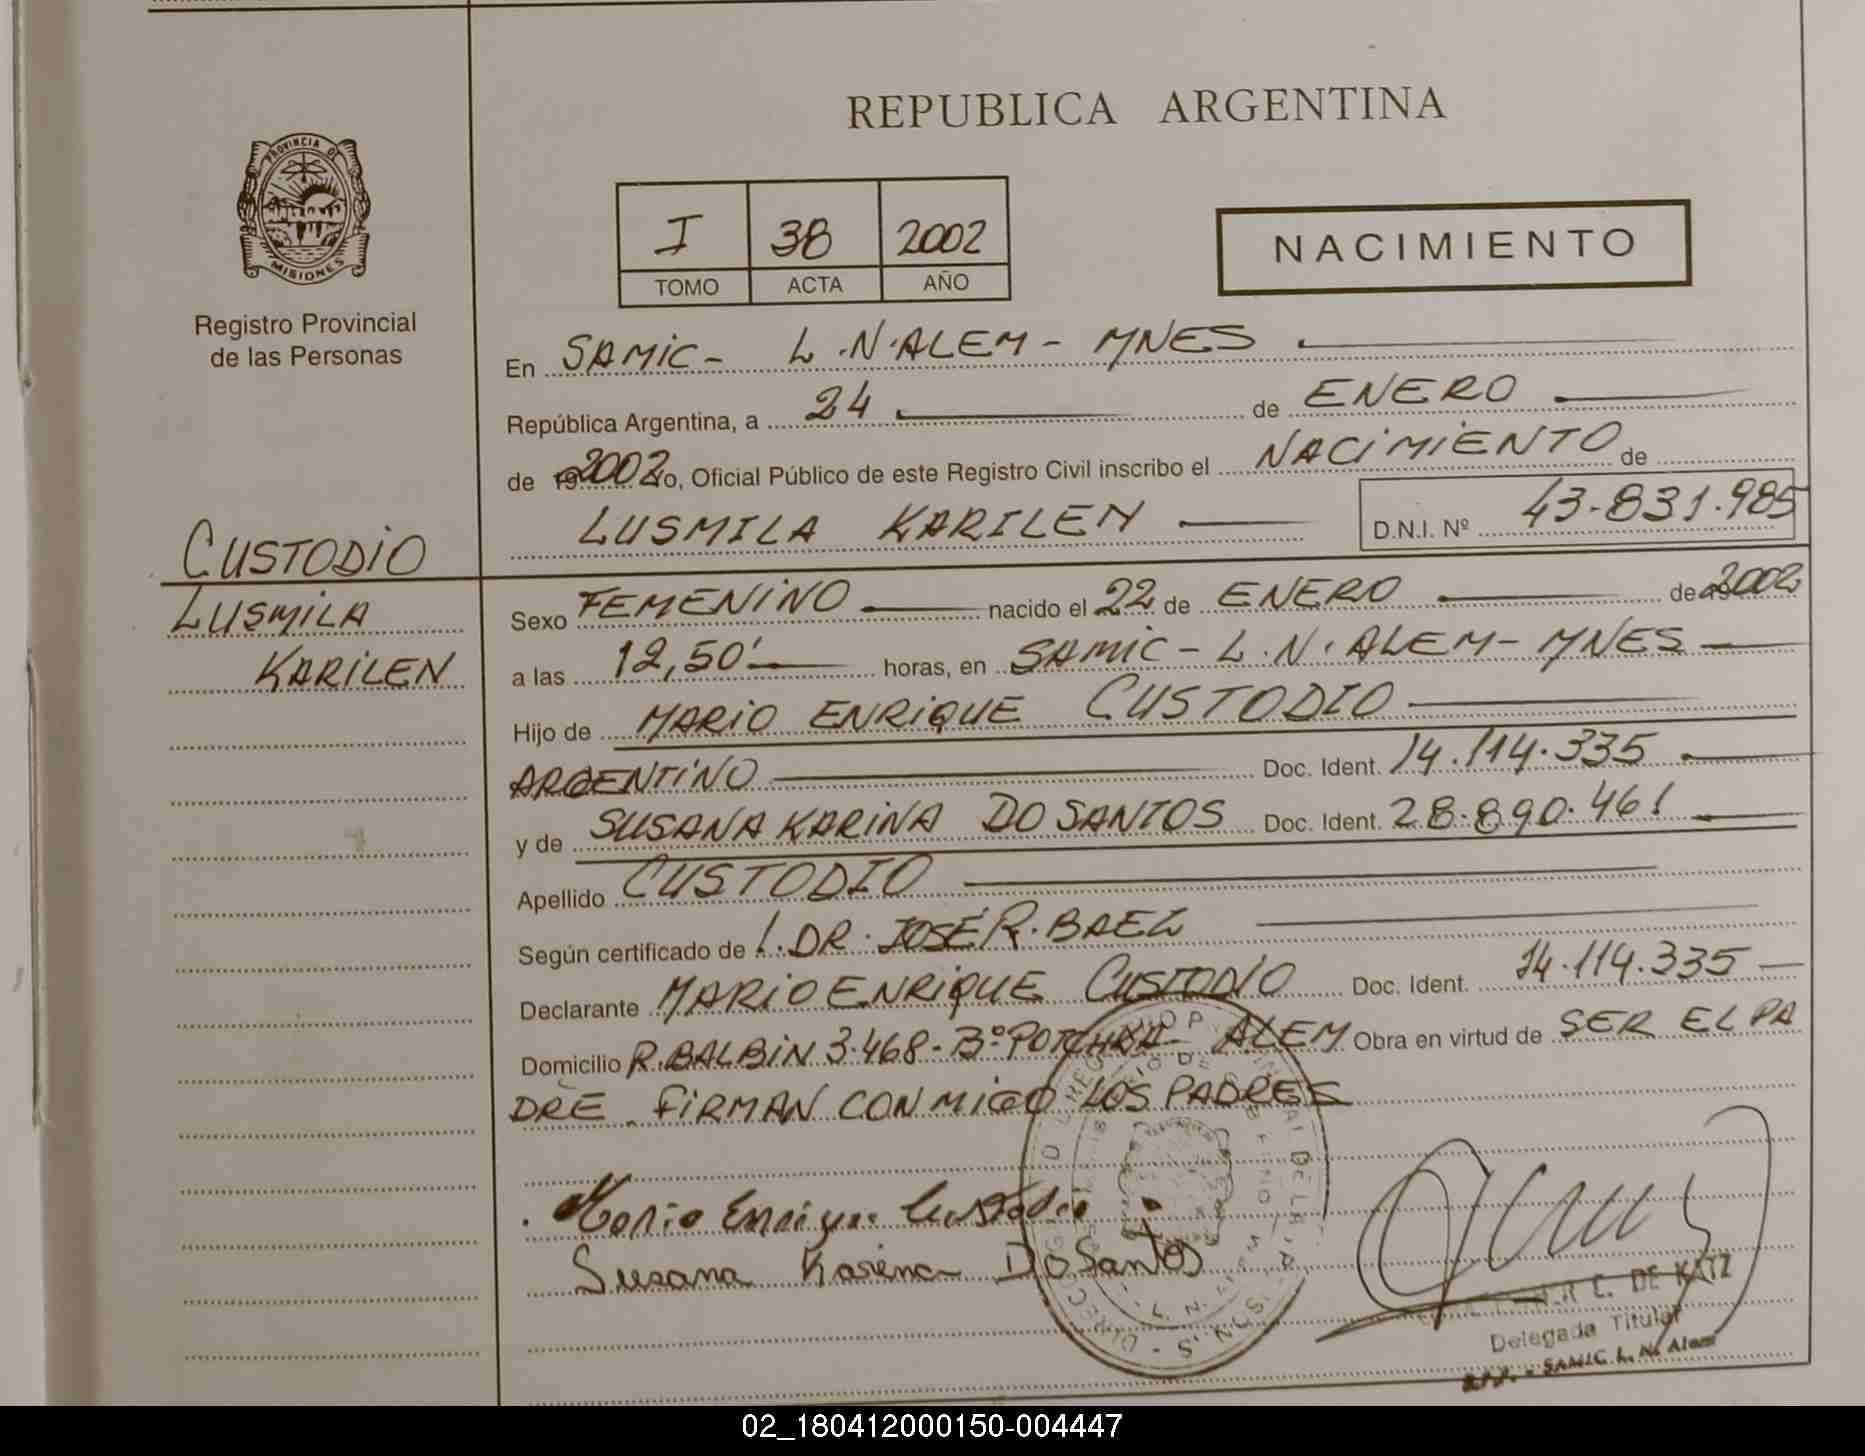 REPUBLICA ARGENTINA
PROVINCIA DE
MISIONES
Registro Provincial
de las Personas
I 38 2002
TOMO ACTA AÑO
NACIMIENTO
En SAMIC - L.N.ALEM - MNES
República Argentina, a 24 de ENERO
de 2002 Yo, Oficial Público de este Registro Civil inscribo el NACIMIENTO de
LUSMILA KARILEN D.N.I. Nº 43.831.985
CUSTODIO
LUSMILA
KARILEN
Sexo FEMENINO nacido el 22 de ENERO de 2002
a las 12,50' horas, en SAMIC - L.N.ALEM - MNES
Hijo de MARIO ENRIQUE CUSTODIO
ARGENTINO Doc. Ident. 14.114.335
y de SUSANA KARINA DO SANTOS Doc. Ident. 28.890.461
Apellido CUSTODIO
Según certificado de DR. JOSÉ R. BAEZ
Declarante MARIO ENRIQUE CUSTODIO Doc. Ident. 14.114.335
Domicilio R.BALBIN 3.468 - Bº ALEM Obra en virtud de SER EL PA
DRE. FIRMAN CONMIGO LOS PADRES
Mario Enrique Custodio
Susana Karina Do Santos
C. DE KATZ
Delegada Titular
SAMIC L. N. Alem
02_180412000150-004447